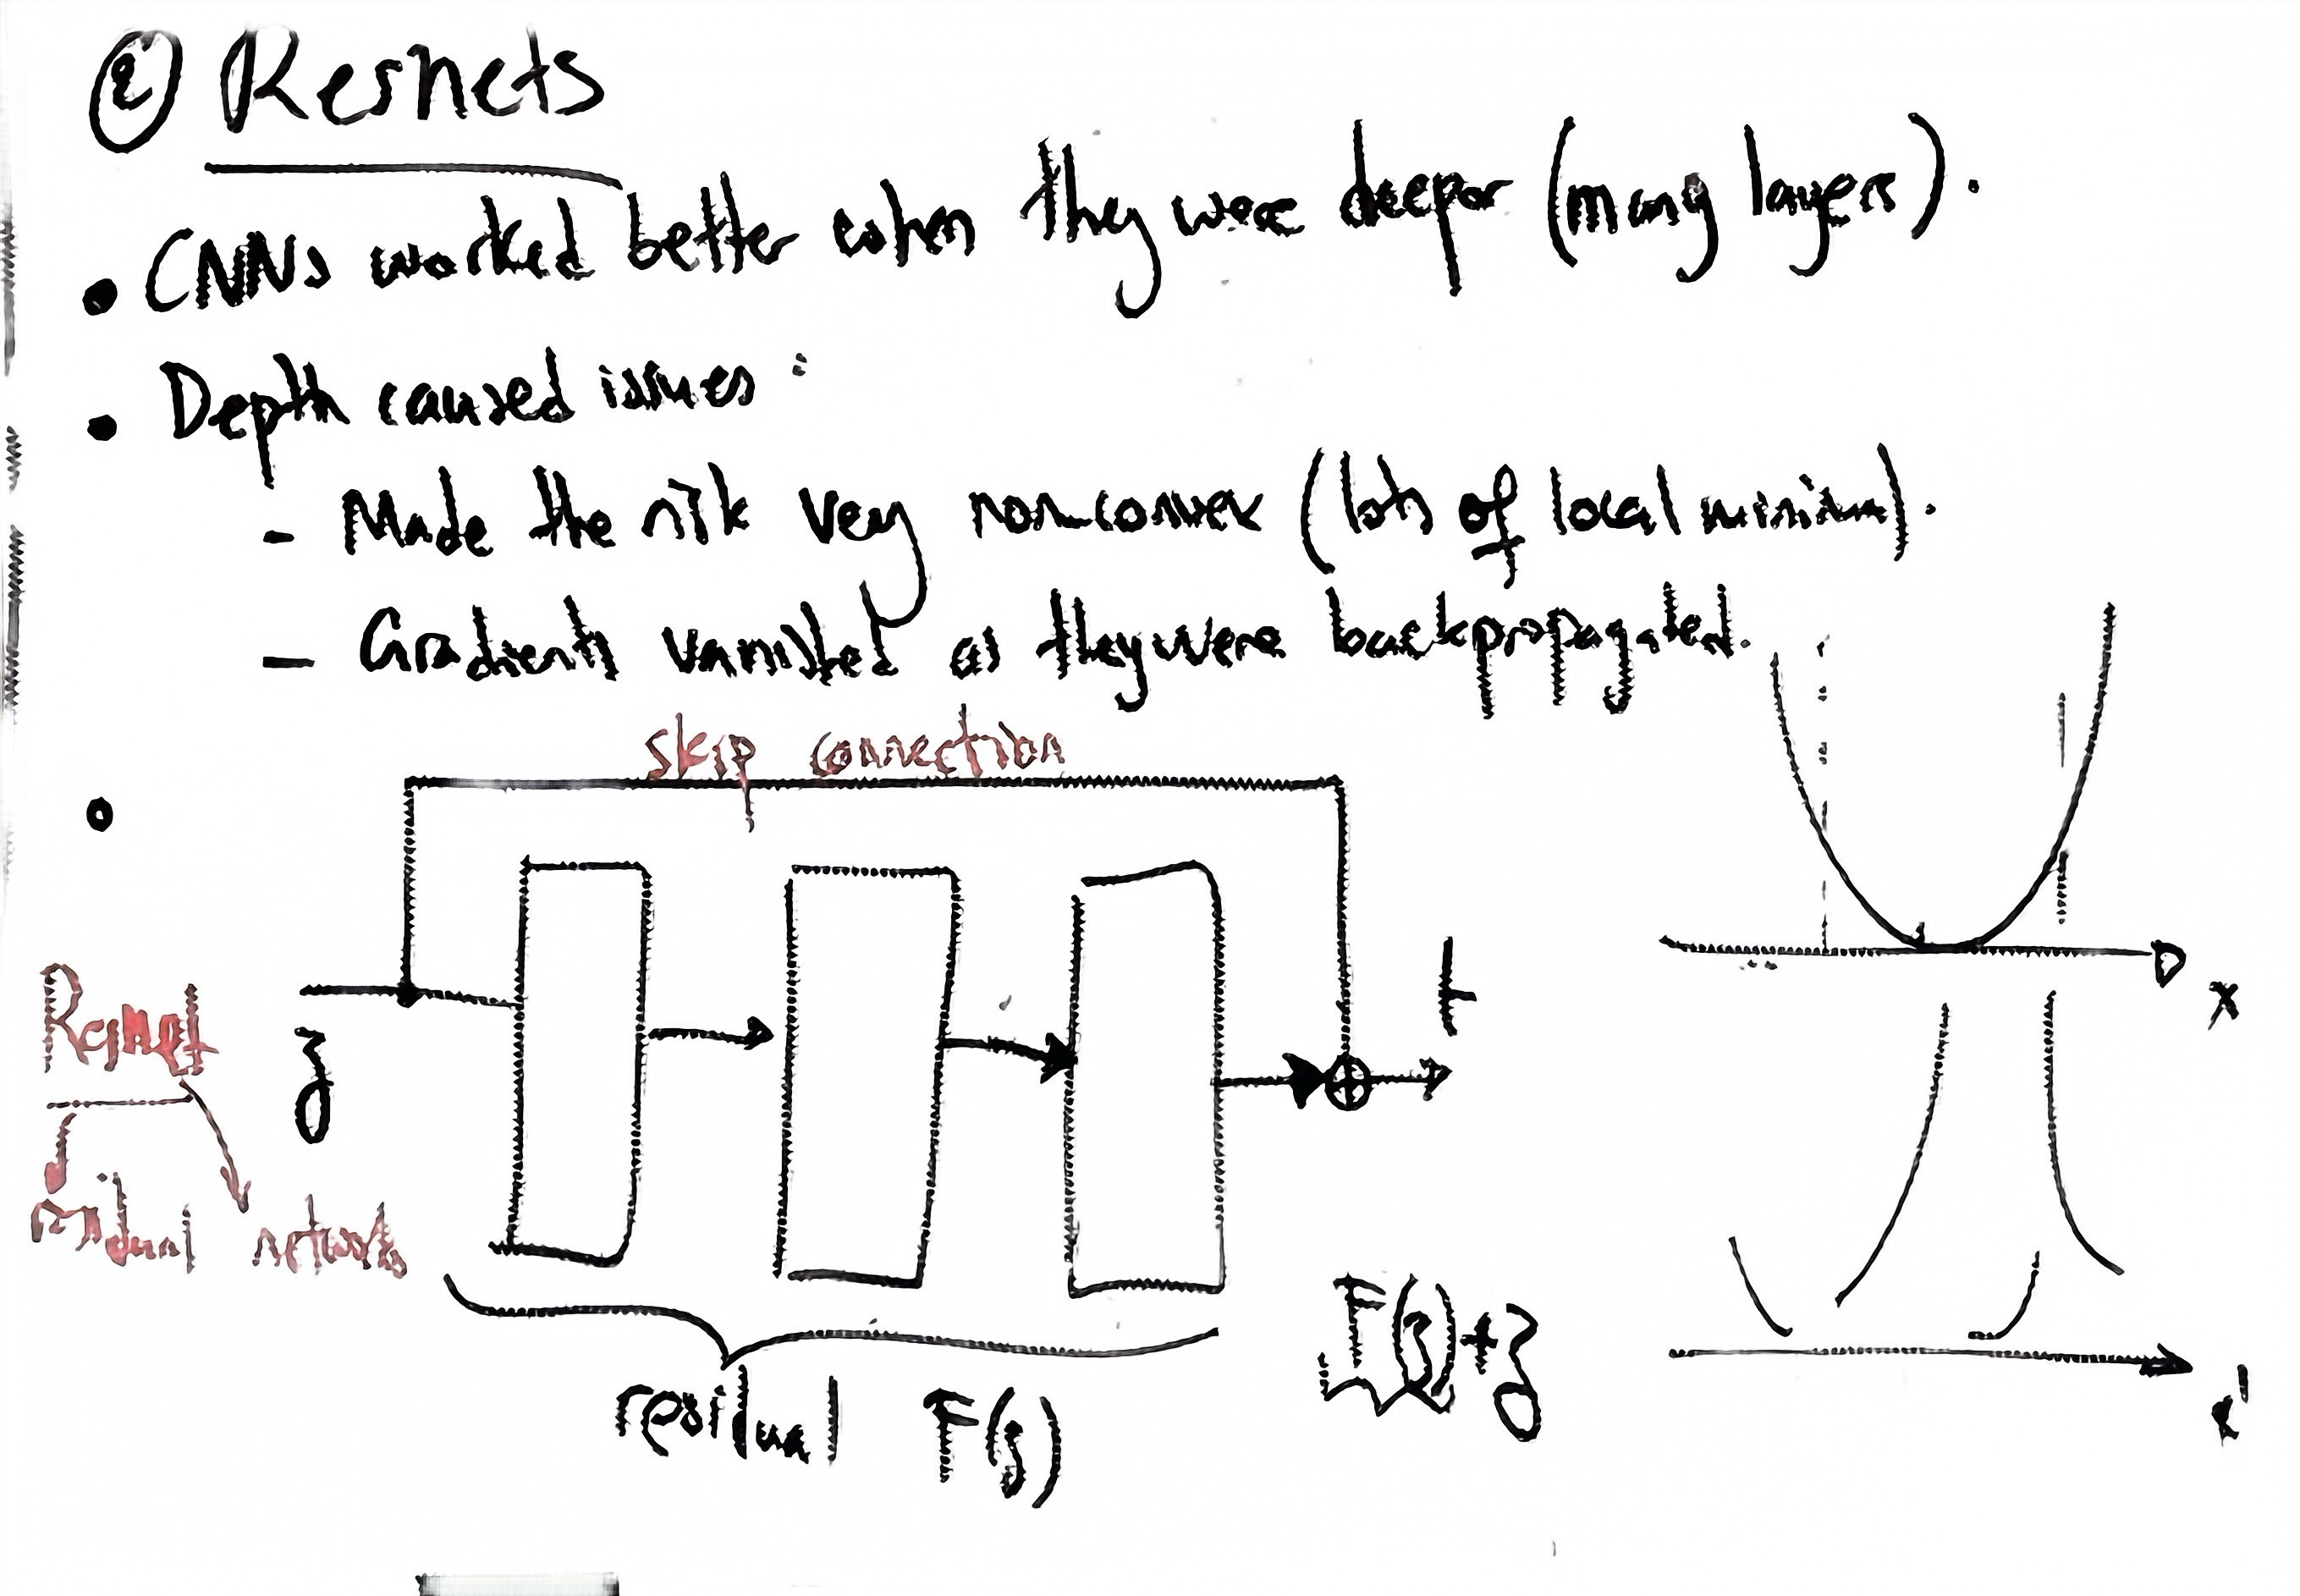 ② Resnets
• CNNs worked better when they were deeper (many layers).
• Depth caused issues:
- Made the risk very non-convex (lots of local minima).
- Gradients vanished as they were backpropagated.
skip connection
•
Resnet
residual network
z
t
x
residual F(z)
F(z)+z